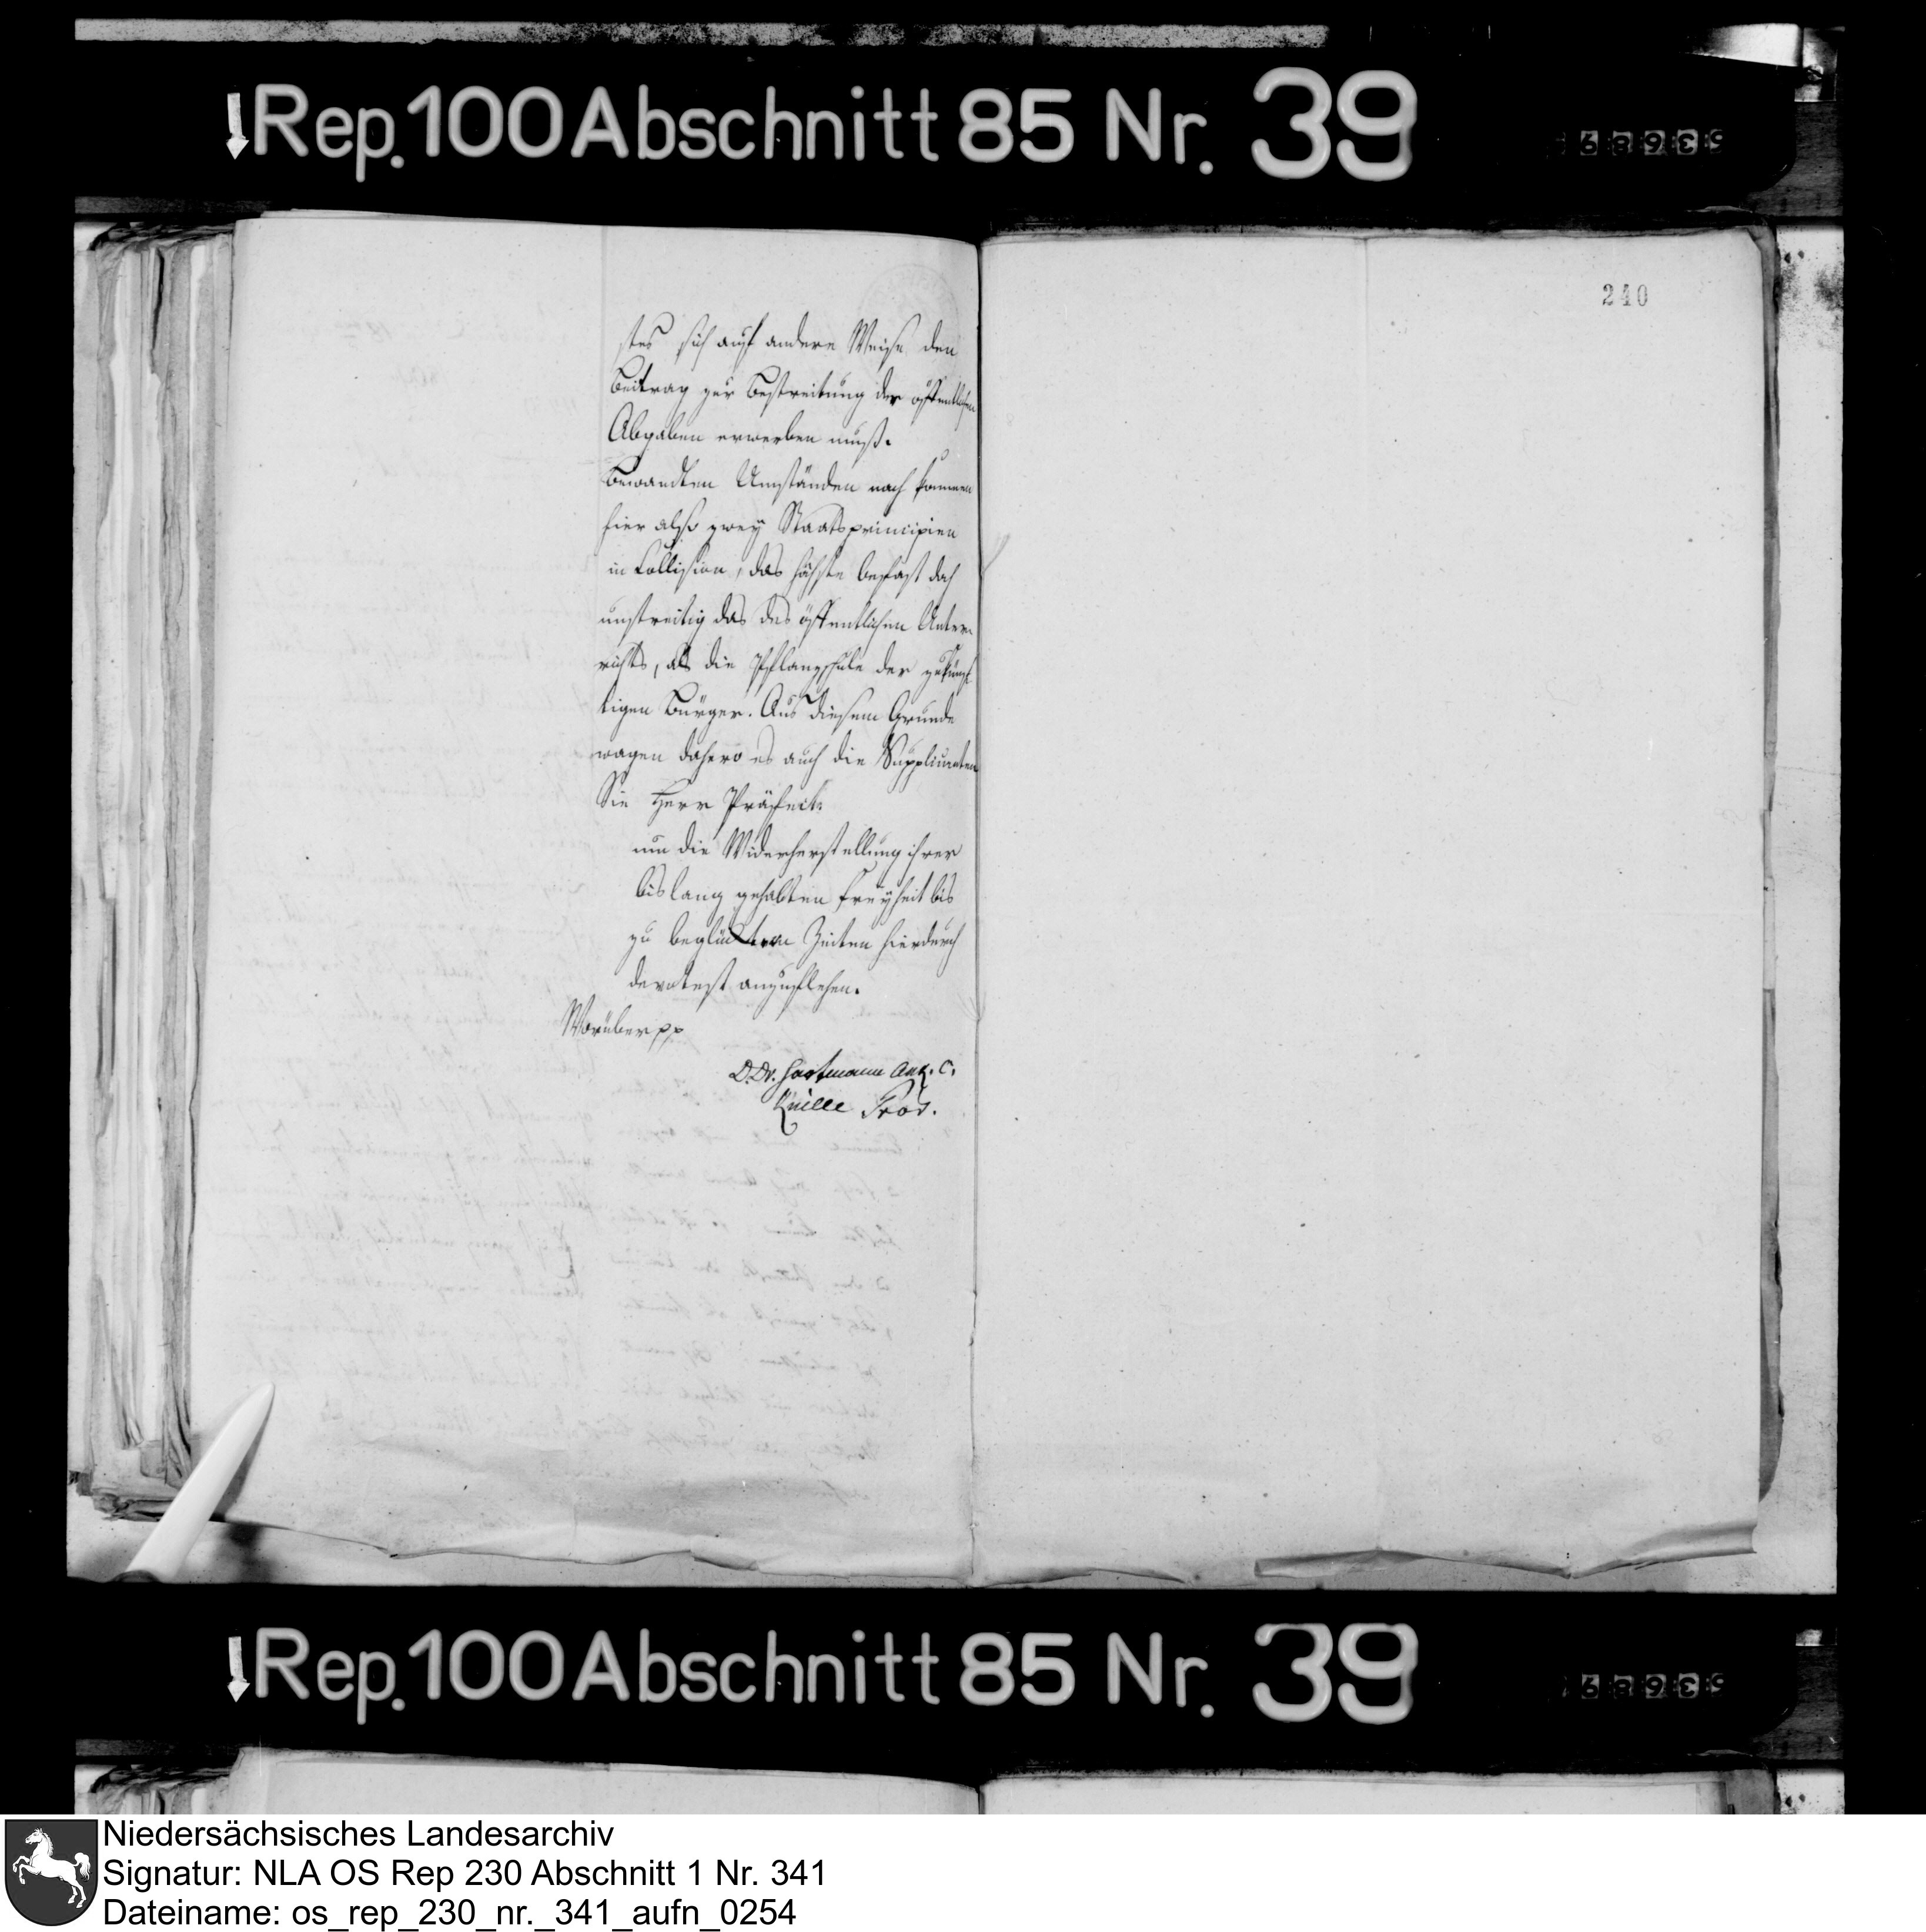 Rep. 100 Abschnitt 85 Nr. 39
240
stes sich auf andere Weise den
Beitrag zur Bestreitung der öffentlichen
Abgaben erwerben muß.
Bewandten Umständen nach kommen
hier also zwey Staatsprincipien
in Collision, das höchste
unstreitig das des öffentlichen Unter-
richts, als die Pflanzschule der zukünf-
tigen Bürger. Aus diesem Grunde
wagen dahero es auch die Supplicanten
Sie Herr Präfect
um die Widerherstellung ihrer
bislang gehabten Freyheit bis
zu beglückteren Zeiten hierdurch
devotest anzuflehen.
Worüber pp
D. Dr. Hartmann
Rep. 100 Abschnitt 85 Nr. 39
Niedersächsisches Landesarchiv
Signatur: NLA OS Rep 230 Abschnitt 1 Nr. 341
Dateiname: os_rep_230_nr._341_aufn_0254